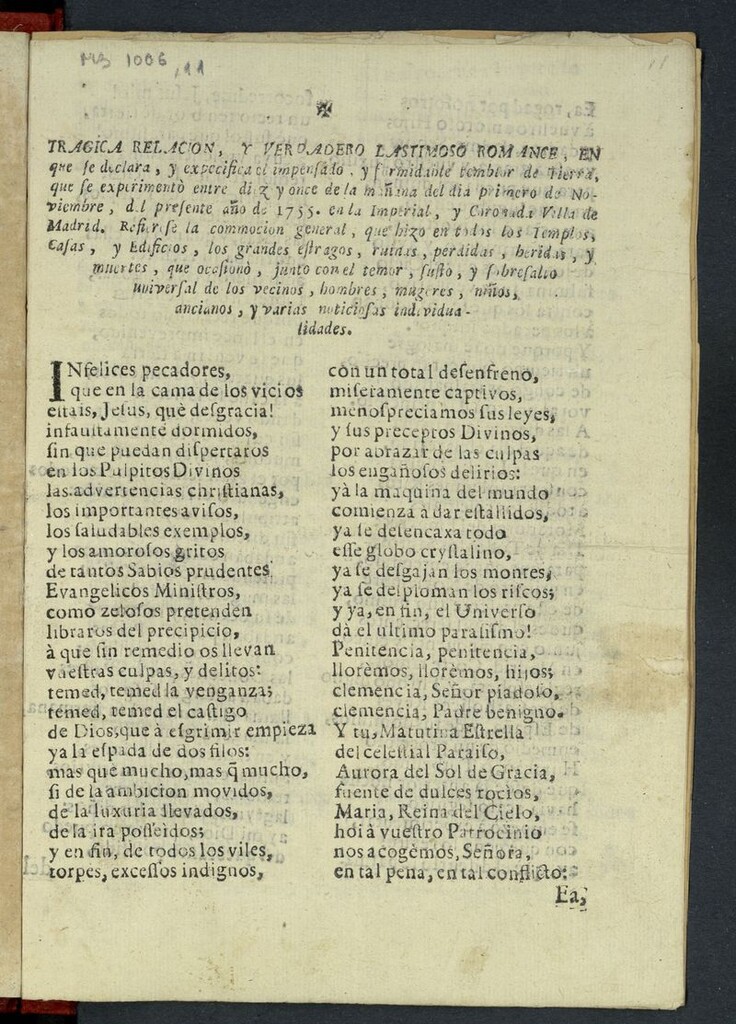 MB 1006,11
11
TRAGICA RELACION, Y VERDADERO LASTIMOSO ROMANCE, EN
que ſe declara, y expecifica el impenſado, y formidable temblor de Tierra,
que ſe experimentò entre diez y once de la mañana del dia primero de No-
viembre, del preſente año de 1755. en la Imperial, y Coronada Villa de
Madrid. Refiereſe la commocion general, que hizo en todos los Templos,
Caſas, y Edificios, los grandes eſtragos, ruinas, perdidas, heridas, y
muertes, que ocaſionò, junto con el temor, ſuſto, y ſobreſalto
univerſal de los vecinos, hombres, mugeres, niños,
ancianos, y varias noticioſas individua-
lidades.
INfelices pecadores,
que en la cama de los vicios
eſtais, Jeſus, què deſgracia!
infauſtamente dormidos,
ſin que puedan diſpertaros
en los Pulpitos Divinos
las advertencias chriſtianas,
los importantes aviſos,
los ſaludables exemplos,
y los amoroſos gritos
de tantos Sabios prudentes
Evangelicos Miniſtros,
como zeloſos pretenden
libraros del precipicio,
à que ſin remedio os llevan
vueſtras culpas, y delitos:
temed, temed la venganza;
temed, temed el caſtigo
de Dios, que à eſgrimir empieza
ya la eſpada de dos filos:
mas que mucho, mas q̃ mucho,
ſi de la ambicion movidos,
de la luxuria llevados,
de la ira poſſeidos;
y en fin, de todos los viles,
torpes, exceſſos indignos,
con un total deſenfreno,
miſeramente captivos,
menoſpreciamos ſus leyes,
y ſus preceptos Divinos,
por abrazar de las culpas
los engañoſos delirios:
yà la maquina del mundo
comienza à dar eſtallidos,
ya ſe deſencaxa todo
eſſe globo cryſtalino,
ya ſe deſgajan los montes,
ya ſe deſploman los riſcos;
y ya, en fin, el Univerſo
dà el ultimo paraſiſmo!
Penitencia, penitencia,
llorèmos, llorèmos, hijos;
clemencia, Señor piadoſo,
clemencia, Padre benigno.
Y tu, Matutina Eſtrella
del celeſtial Paraiſo,
Aurora del Sol de Gracia,
fuente de dulces rocios,
Maria, Reina del Cielo,
hoi à vueſtro Patrocinio
nos acogèmos, Señora,
en tal pena, en tal conflicto:
Ea,